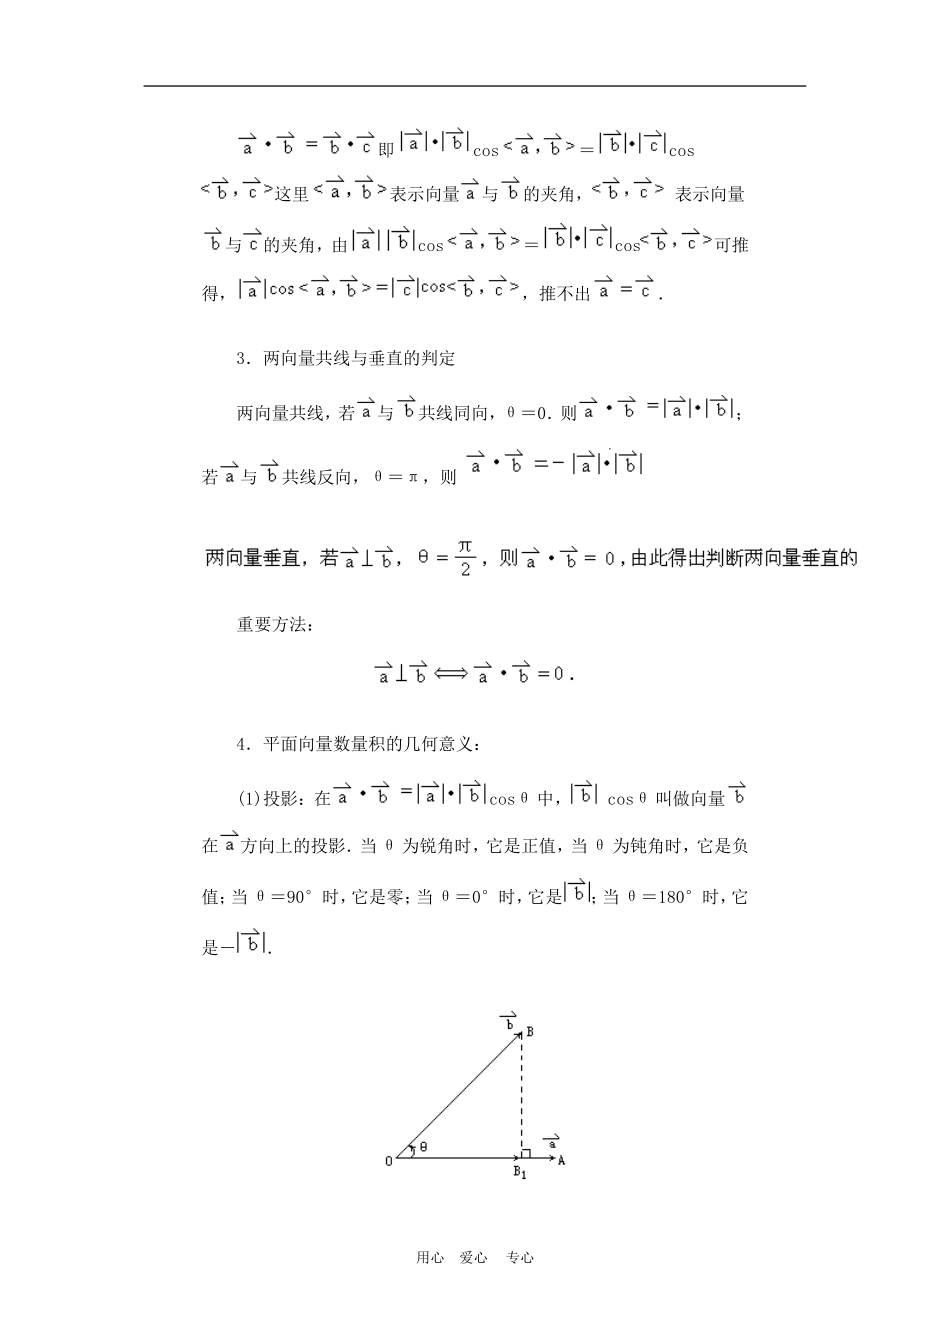 a⃗·b⃗=b⃗·c⃗即|a⃗|·|b⃗|cos<a⃗,b⃗>=|b⃗|·|c⃗|cos
<b⃗,c⃗>这里<a⃗,b⃗>表示向量a⃗与b⃗的夹角,<b⃗,c⃗> 表示向量
b⃗与c⃗的夹角,由|a⃗||b⃗|cos<a⃗,b⃗>=|b⃗|·|c⃗|cos<b⃗,c⃗>可推
得,|a⃗|cos<a⃗,b⃗>=|c⃗|cos<b⃗,c⃗>,推不出a⃗=c⃗.
3.两向量共线与垂直的判定
两向量共线,若a⃗与b⃗共线同向,θ=0.则a⃗·b⃗=|a⃗|·|b⃗|;
若a⃗与b⃗共线反向,θ=π,则a⃗·b⃗=-|a⃗|·|b⃗|
两向量垂直,若a⃗⊥b⃗,θ=π/2,则a⃗·b⃗=0,由此得出判断两向量垂直的
重要方法:
a⃗⊥b⃗⟺a⃗·b⃗=0.
4.平面向量数量积的几何意义:
(1)投影:在a⃗·b⃗=|a⃗|·|b⃗|cosθ中,|b⃗| cosθ叫做向量b⃗
在a⃗方向上的投影.当θ为锐角时,它是正值,当θ为钝角时,它是负
值;当θ=90°时,它是零;当θ=0°时,它是|b⃗|;当θ=180°时,它
是-|b⃗|.
b⃗ B
θ a⃗
O B₁ A
用心 爱心 专心